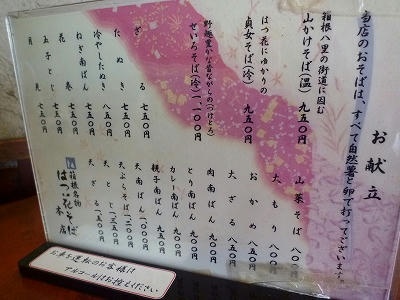 お献立
当店のおそばは、すべて自然薯と卵で打ってございます。
箱根八里の街道に因む
山かけそば(温) 九五〇円
はつ花にゆかりの
貞女そば(冷) 九五〇円
野趣豊かな昔ながらの(つけとろ)
せいろそば(冷) 一、一〇〇円
ざる 七五〇円
たぬき 七五〇円
冷やしたぬき 八五〇円
ねぎ南ばん 七五〇円
花巻 七五〇円
玉子とじ 七五〇円
月見 七五〇円
山菜そば 八〇〇円
大もり
おかめ 八五〇円
大ざる 八五〇円
肉南ばん
とり南ばん 九五〇円
カレー南ばん 九五〇円
親子南ばん 九五〇円
天南ばん
天ぷらそば
天とじ
天ざる
箱根名物
はつ花そば
本店
お車を運転のお客様は
アルコールはお控えください